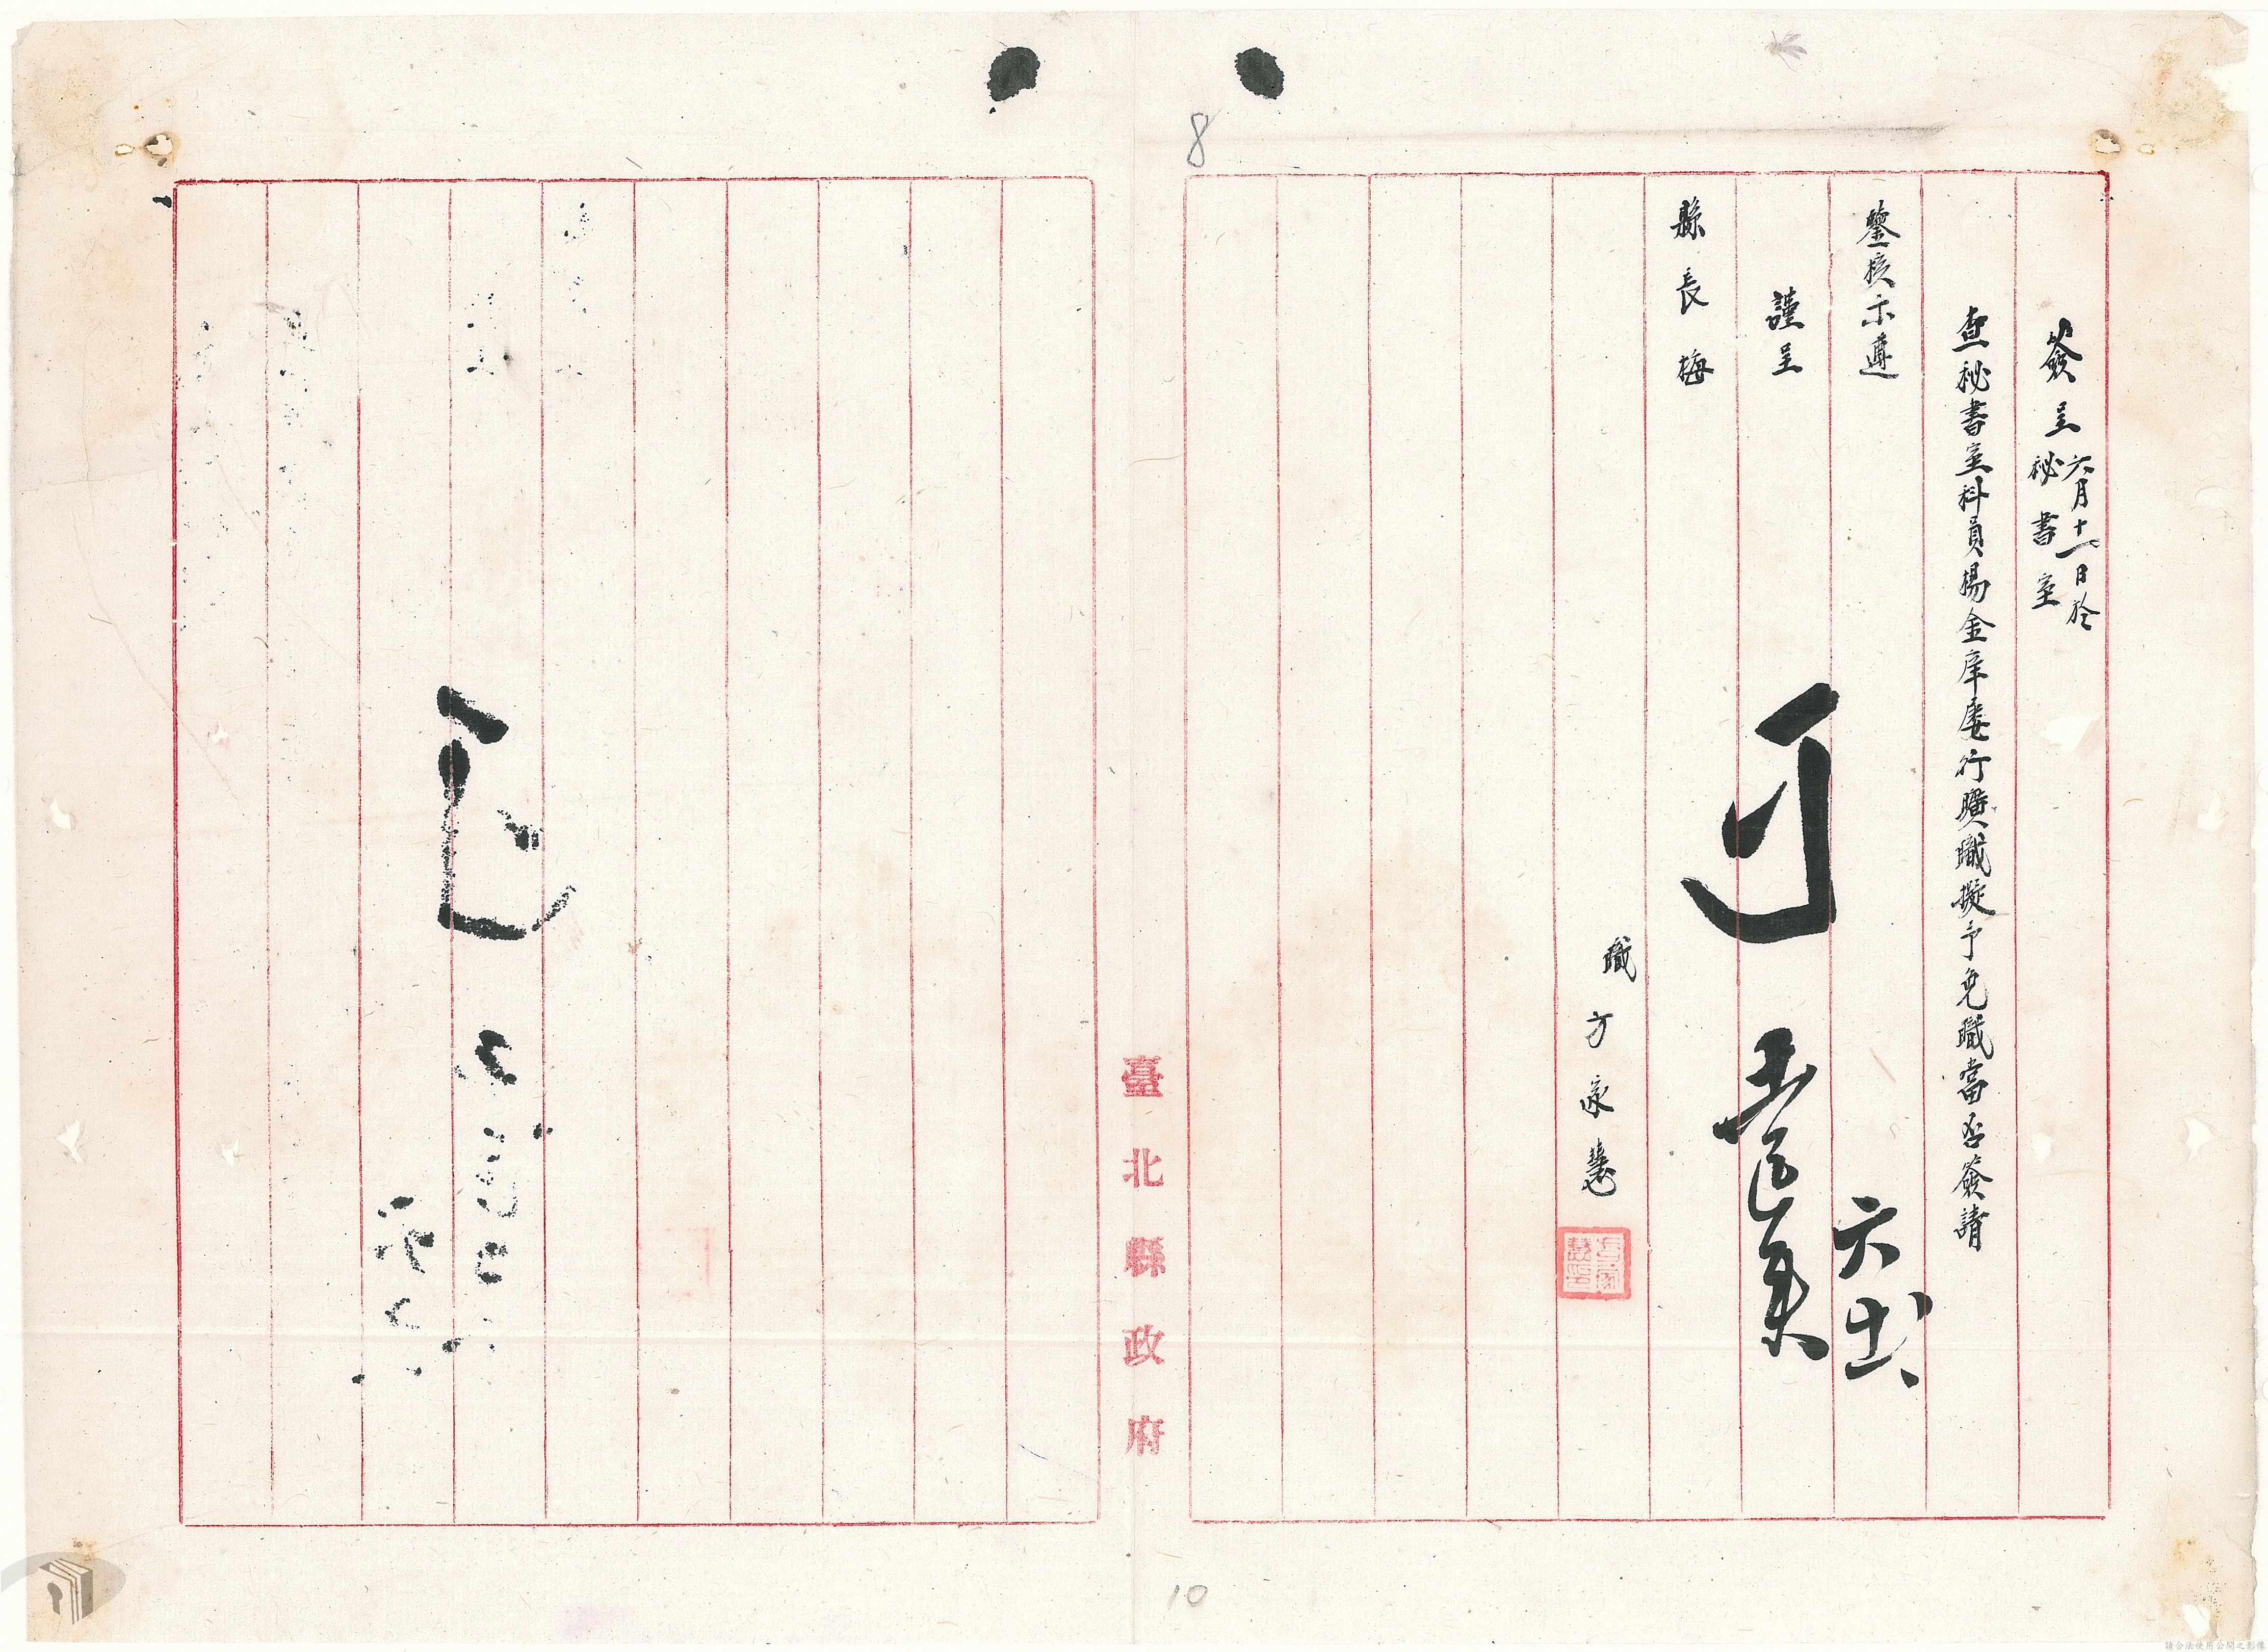 簽呈 六月十一日於
秘書室
查秘書室科員楊金庠屢行曠職擬予免職當否簽請
鑒核示遵
謹呈
縣長梅
職方家慧
可
六
臺北縣政府
8
10
請合法使用公開之影像